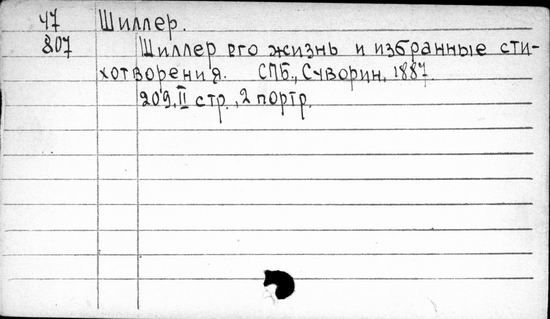 47 Шиллер.
807 Шиллер его жизнь и избранные сти-
хотворения. СПБ., Суворин, 1887.
209, II стр., 2 портр.